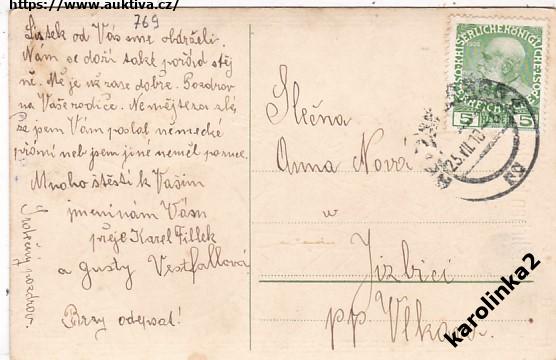 https://www.auktiva.cz/
769
Lístek od Vás sme obdrželi.
Nám se daří také pořád stej
ně. Mě je už zase dobře. Pozdrav
na Vaše rodiče. Nemějte za zlé
že jsem Vám poslal německé
přání neb jsem jiné neměl po ruce.
Mnoho štěstí k Vašim
jmeninám Vám
přeje Karel Fillek
a Gusty Vestfallová
Srdečný pozdrav.
Brzy odepsat!
Slečna
Anna Nová
w
Jizbici
pp Vlka
5 5
1908
23.VII.10
karolinka2